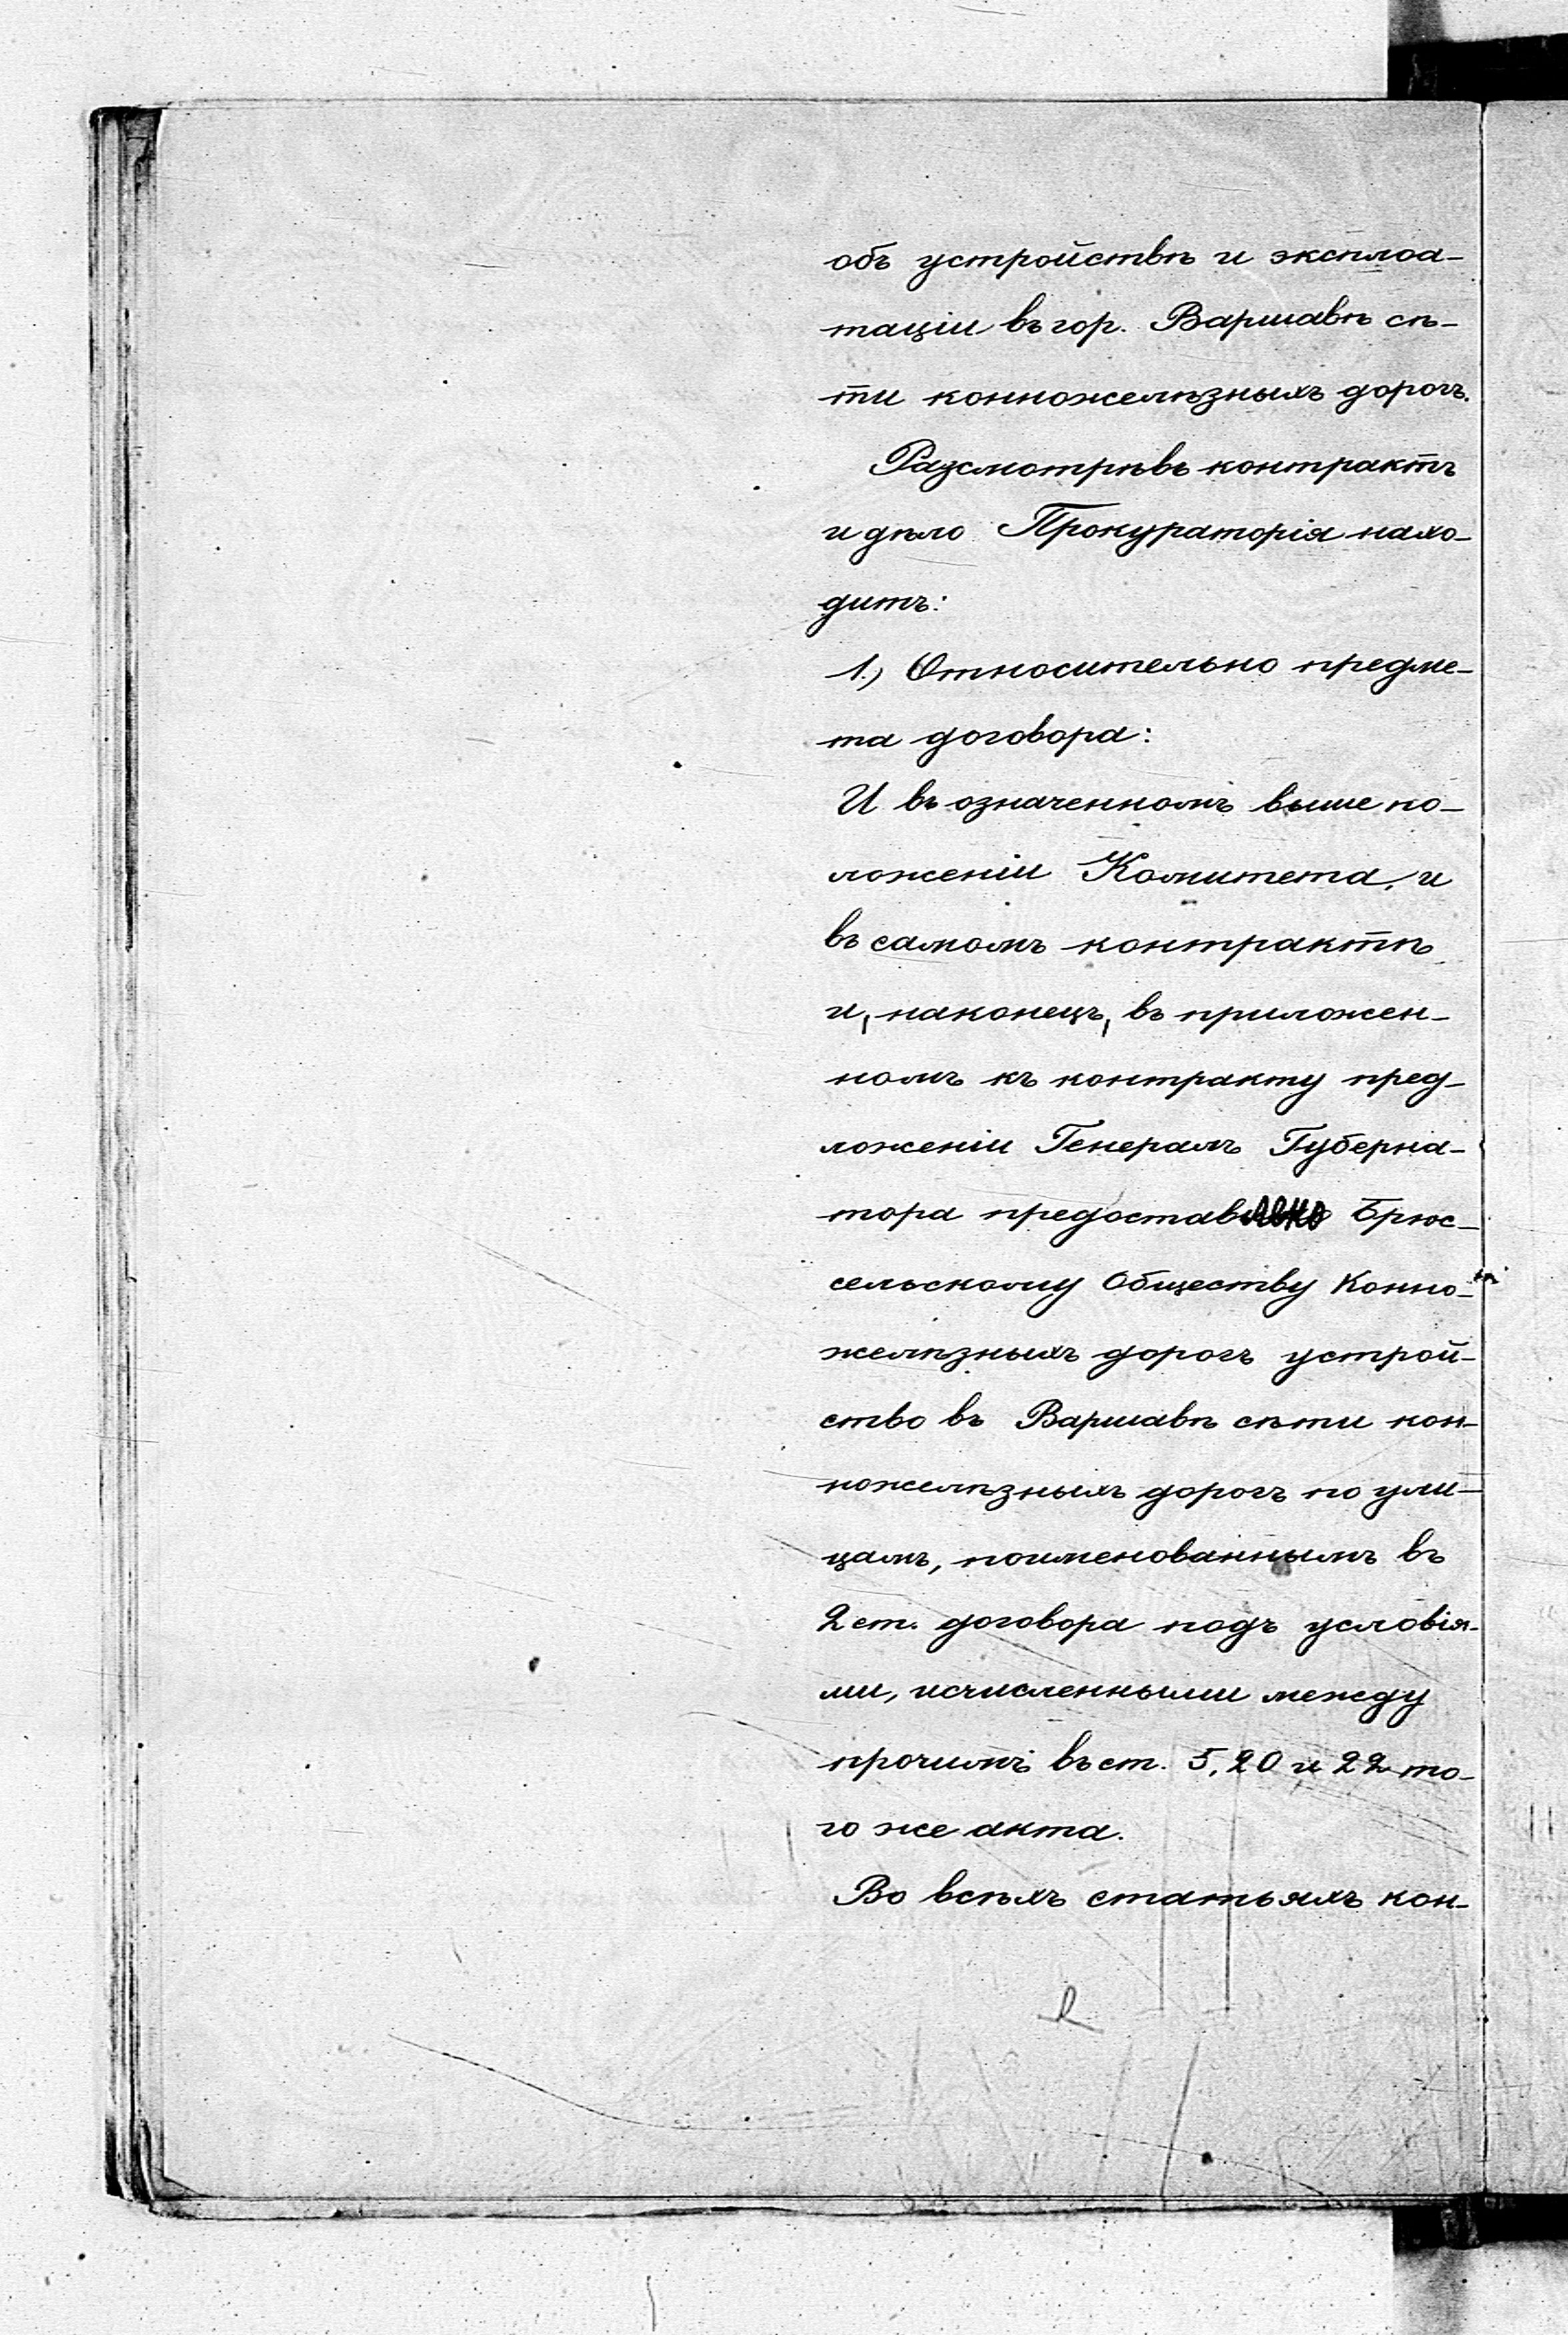 объ устройствѣ и эксплоа-
таціи въ гор. Варшавѣ сѣ-
ти конножелѣзныхъ дорогъ.
Разсмотрѣвъ контрактъ
и дѣло Прокураторія нахо-
дитъ:
1.) Относительно предме-
та договора:
И въ означенномъ выше по-
ложеніи Комитета, и
въ самомъ контрактѣ
и, наконецъ, въ приложен-
номъ къ контракту пред-
ложеніи Генералъ Губерна-
тора предоставлено Брюс-
сельскому Обществу Конно-
желѣзныхъ дорогъ устрой-
ство въ Варшавѣ сѣти кон-
ножелѣзныхъ дорогъ по ули-
цамъ, поименованнымъ въ
2 ст. договора подъ условія-
ми, исчисленными между
прочимъ въ ст. 5, 20 и 22 то-
го же акта.
Во всѣхъ статьяхъ кон-